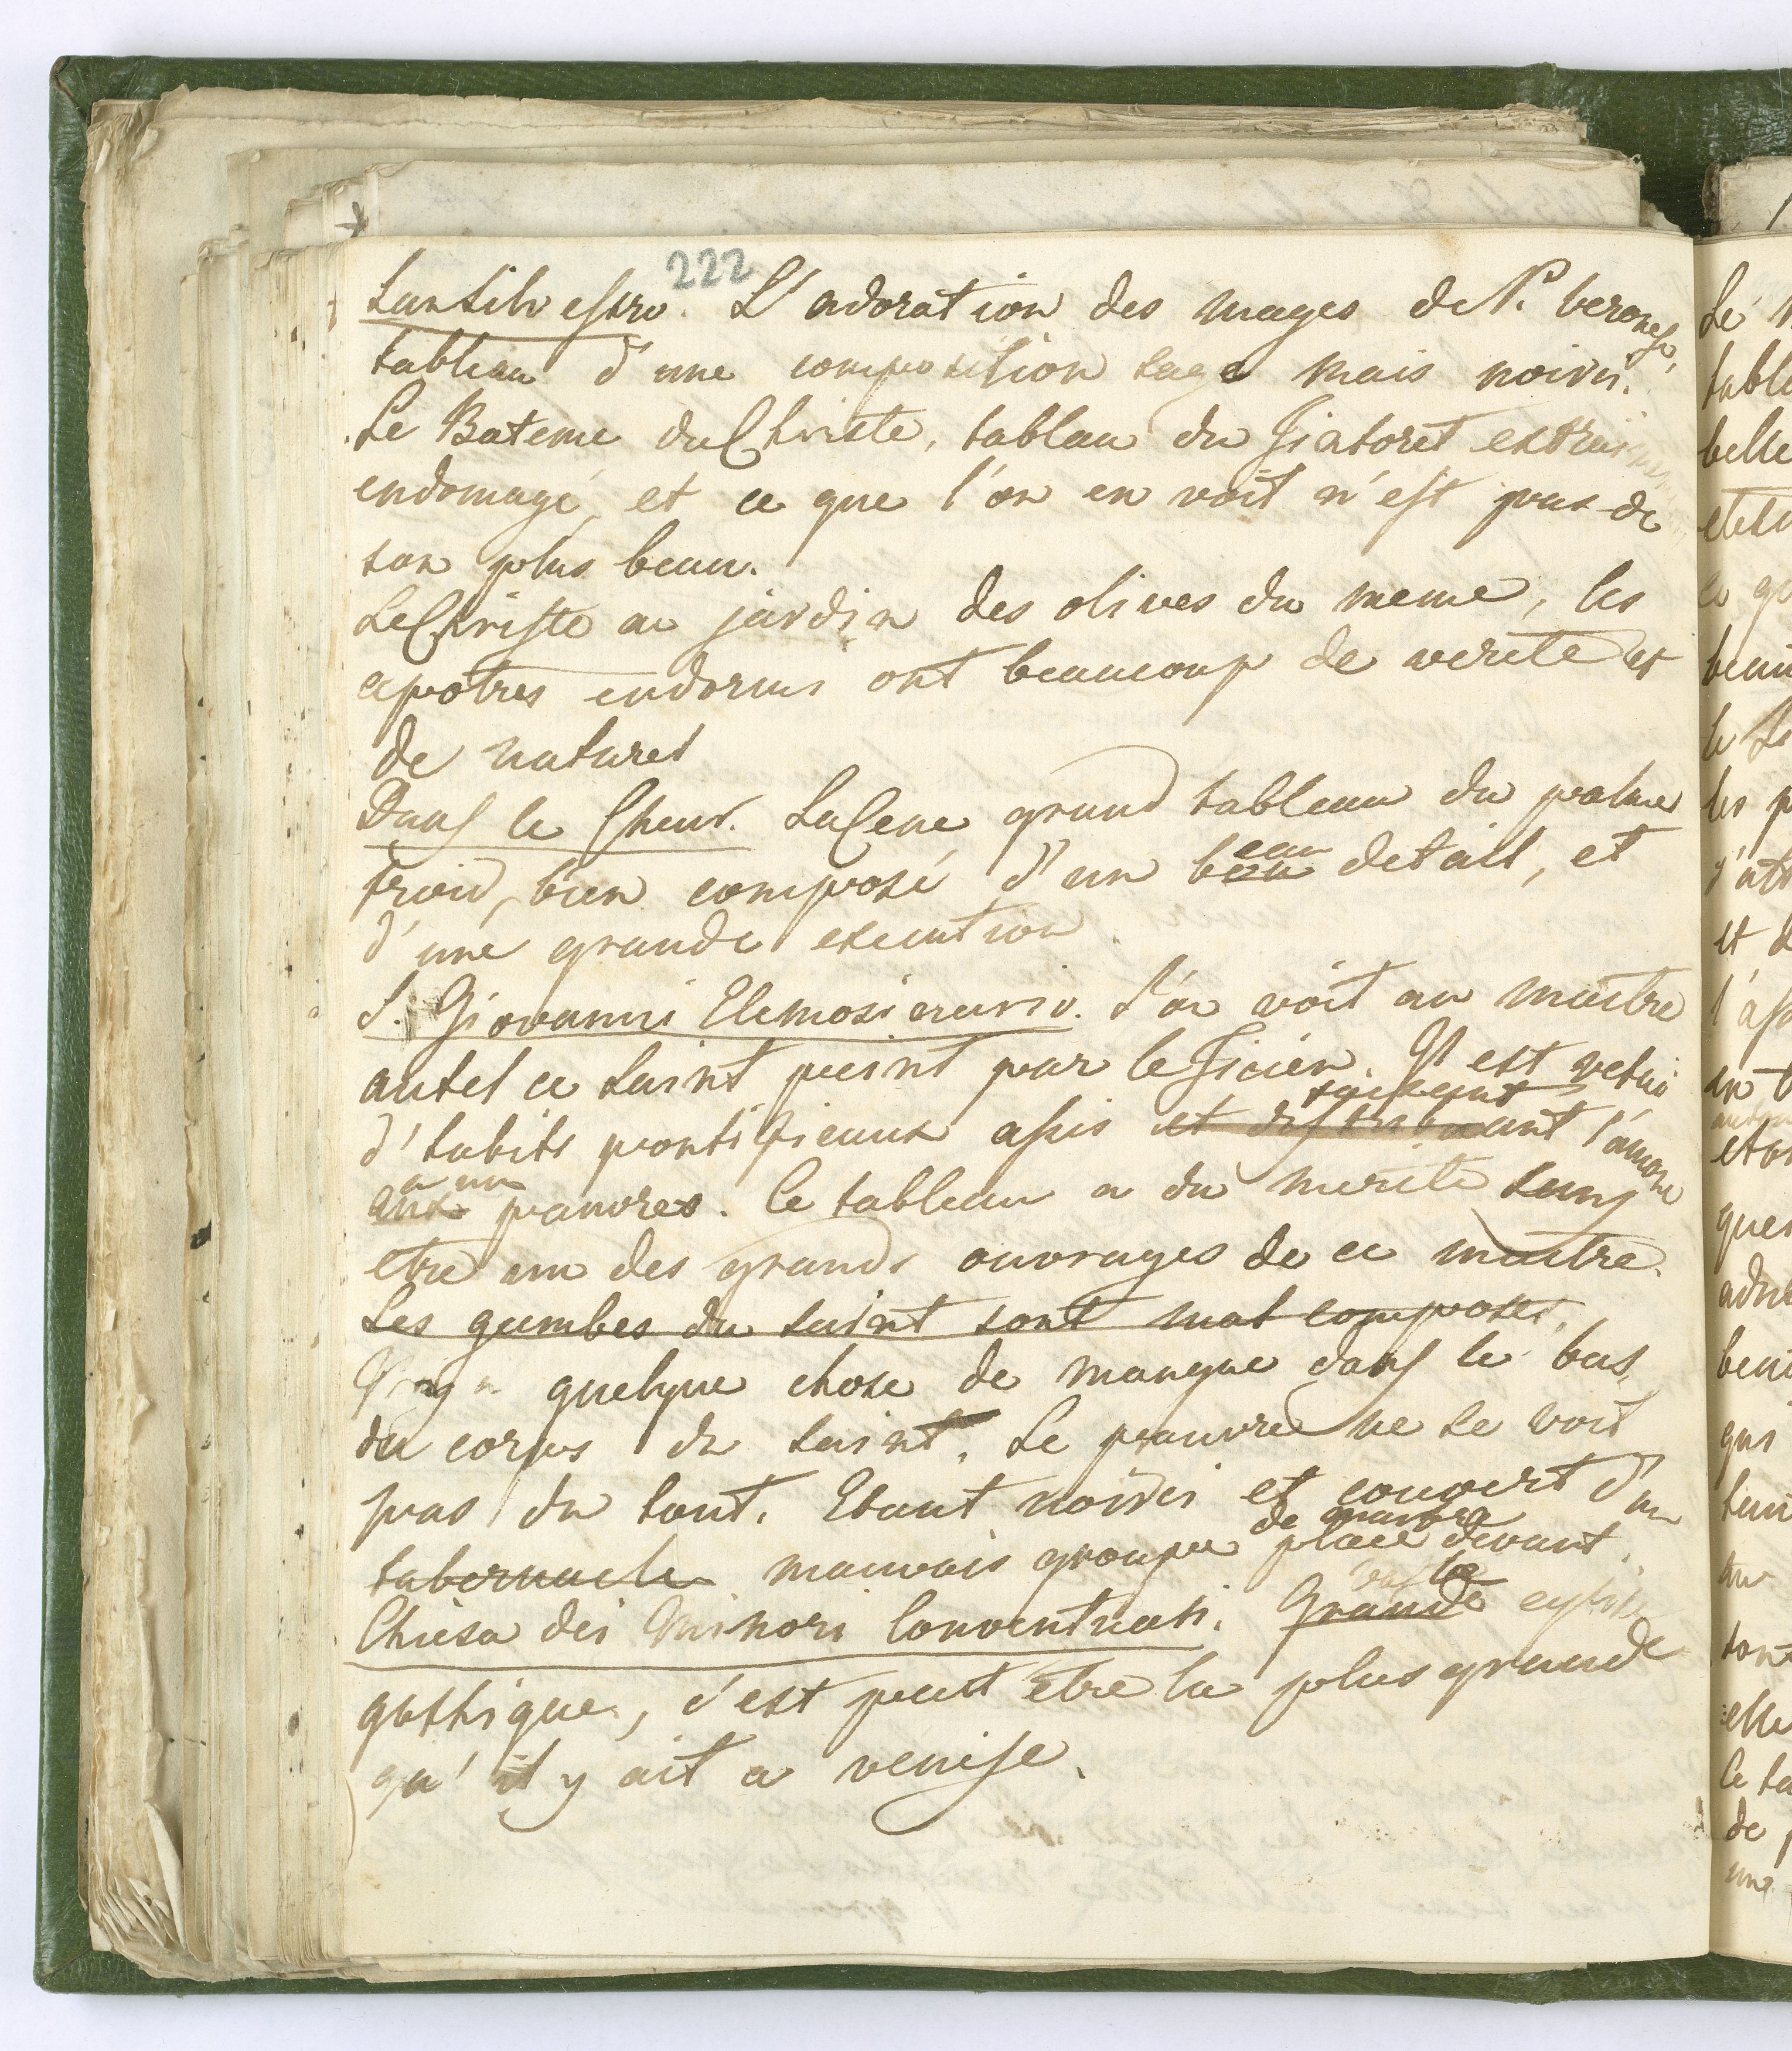 222
San Silvestro. L'adoration des mages de P. veronese,
tableau d'une composition sage mais noirci.
Le Bateme du Christe, tablau du Tintoret
endomagé, et ce que l'on en voit n'est pas de
son plus beau.
Le Christe au jardin des olives du meme, les
apotres endormis ont beaucoup de verité et
de naturel
Dans le Cheur. La Cene grand tableau du palme
froid, bien composé d'un beau eau detail, et
d'une grande execution
S. Giovanni Elemosinario. L'on voit au maitre
autel ce saint peint par le Ticien. Il est vetu
d'habits pontificaux assis et distribuant l'aumone
a un
aux pauvres. Ce tableau a du merite sans
etre un des grands ouvrages de ce maitre.
Les gambes du saint sont mal composés,
Il y a quelque chose de manque dans le bas
du corps du saint. Le pauvre ne se voit
pas du tout. Etant noirci et couvert d'un
de marbre
tabernacle mauvais groupe placé devant.
vaste
Chiesa dei Minori Conventuali. Grande eglise
gothique, c'est peut etre la plus grande
qu'il y ait a venise.